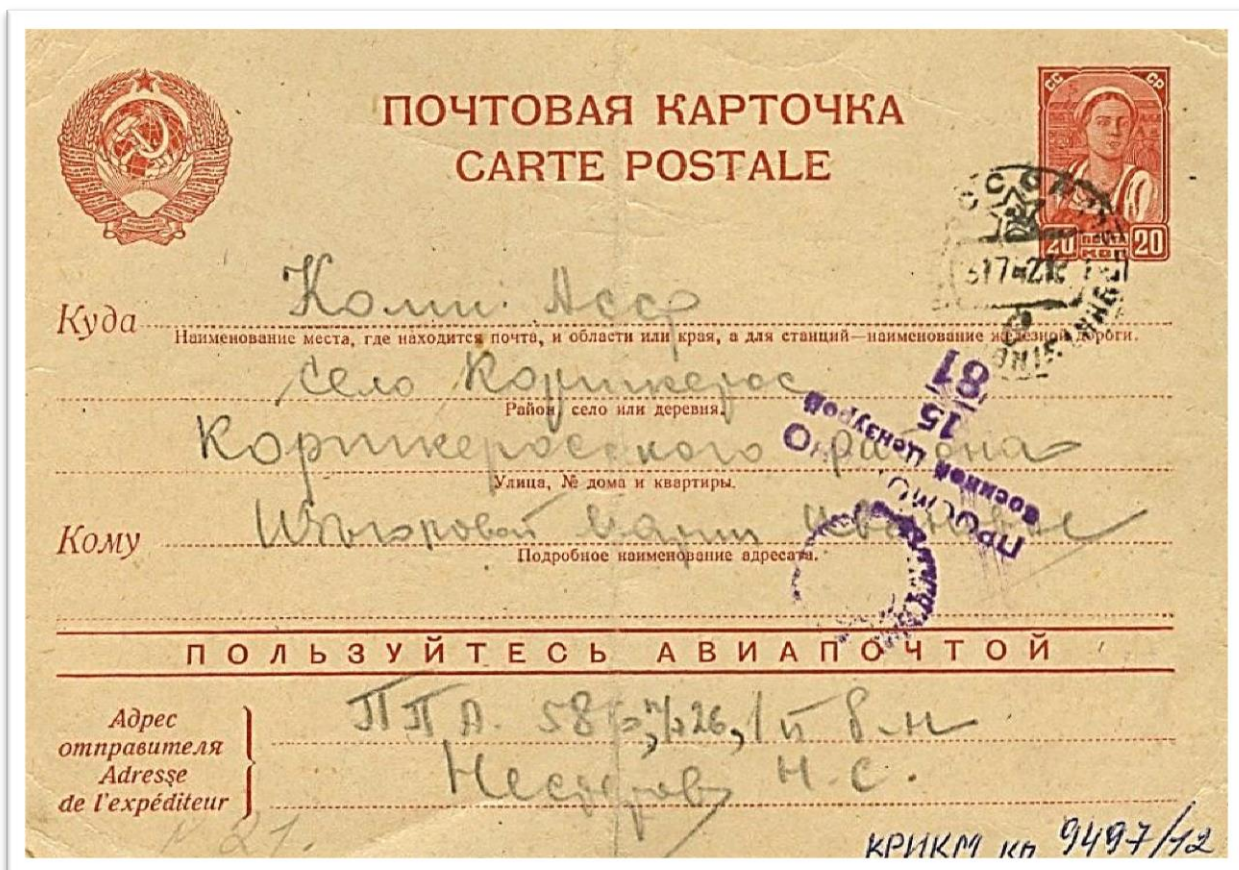 ПОЧТОВАЯ КАРТОЧКА
CARTE POSTALE
СС СР
20 ПОЧТА КОП 20
СССР
Куда Коми Асср
Наименование места, где находится почта, и области или края, а для станций—наименование железной дороги.
село Корткерос
Район, село или деревня.
Корткеросского района
Улица, № дома и квартиры.
Кому Изъюровой Марии Ивановне
Подробное наименование адресата.
ПРОСМОТРЕНО
Военной Цензурой
15
81
ПОЛЬЗУЙТЕСЬ АВИАПОЧТОЙ
Адрес
отправителя
Adresse
de l'expéditeur
ППА. 58
Нестеров Н. С.
КРИКМ кп 9497/12